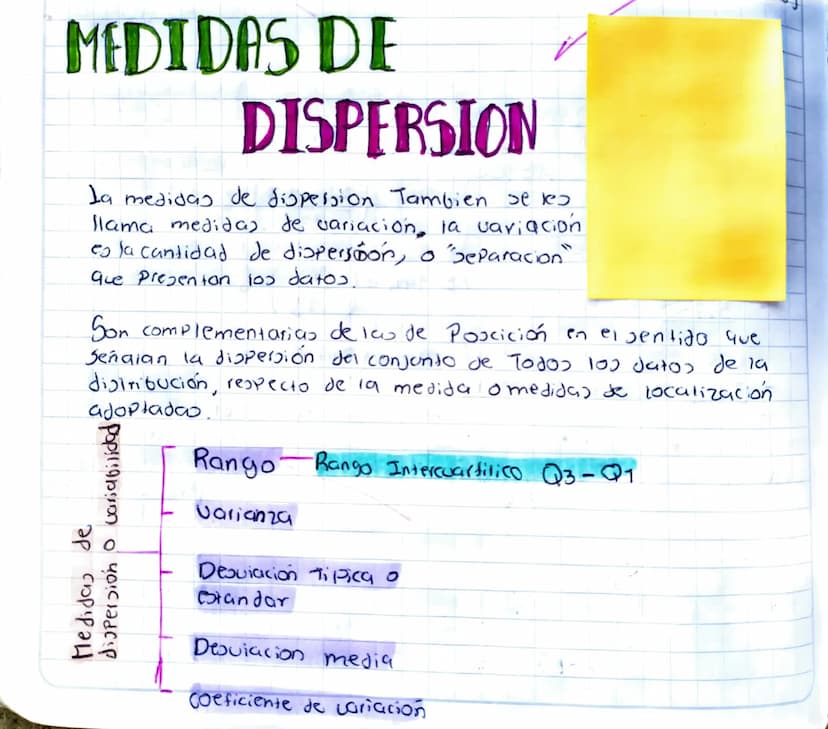 MEDIDAS DE
DISPERSION
La medidas de dispersion Tambien se les
llama medidas de variación. la variación
es la cantidad de dispersión, o "separacion"
que presentan los datos.
Son complementarias de las de Poscición en el sentido que
señalan la dispersión del conjunto de Todos los datos de la
distribución, respecto de la medida o medidas de localización
adoptadas.
Medidas de
dispersión o variabilidad
Rango — Rango Intercuartilico Q3-Q1
varianza
Desviación Tipica o
estandar
Desviacion media
coeficiente de variación